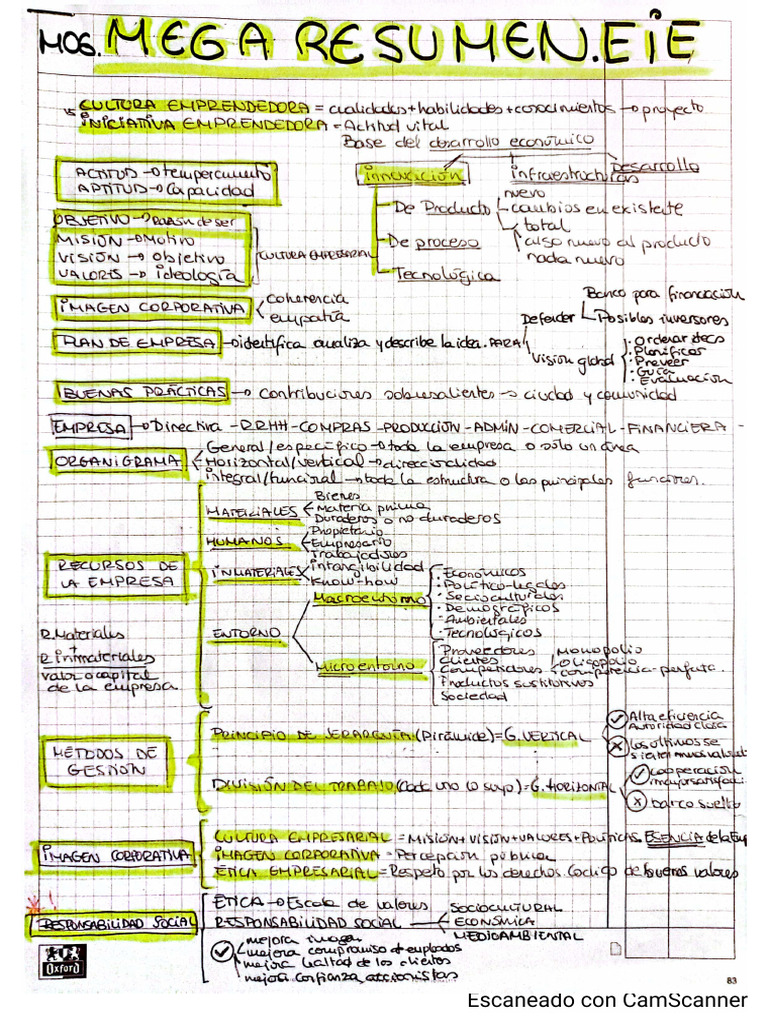 M06. MEGA RESUMEN. EIE
vs CULTURA EMPRENDEDORA = cualidades + habilidades + conocimientos → proyecto
INICIATIVA EMPRENDEDORA = Actitud vital
Base del desarrollo económico
ACTITUD → temperamento
APTITUD → Capacidad
innovación
infraestructuras
Desarrollo
De Producto
nuevo
cambios en existente
De proceso
total
algo nuevo al producto
nada nuevo
Tecnológica
OBJETIVO → razón de ser
MISIÓN → Motivo
VISIÓN → objetivo
VALORES → ideología
CULTURA EMPRESARIAL
IMAGEN CORPORATIVA
coherencia
empatía
PLAN DE EMPRESA → identifica analiza y describe la idea. PARA
Defender
Banco para financiación
Posibles inversores
Visión global
· Ordenar decs
· Planificar
· Preveer
· Guía
· Evaluación
BUENAS PRÁCTICAS → contribuciones sobresalientes → ciudad y comunidad
EMPRESA → Directiva - RRHH - COMPRAS - PRODUCCIÓN - ADMIN - COMERCIAL - FINANCIERA -
ORGANIGRAMA
General/específico → toda la empresa o solo un área
Horizontal/vertical → direccionalidad
integral/funcional → toda la estructura o las principales funciones.
RECURSOS DE LA EMPRESA
MATERIALES
Bienes
Materia prima
Duraderos o no duraderos
HUMANOS
Propietario
Empresario
Trabajadores
INMATERIALES
intangibilidad
Know-how
ENTORNO
Macroentorno
· Económicos
· Político-legales
· Socioculturales
· Demográficos
· Ambientales
· Tecnológicos
Microentorno
Proveedores
Clientes
Competidores
Monopolio
Oligopolio
competencia perfecta.
Productos sustitutivos
Sociedad
R. Materiales
+
R. inmateriales
valor o capital
de la empresa
MÉTODOS DE GESTIÓN
PRINCIPIO DE JERARQUÍA (Pirámide) = G. VERTICAL
Alta eficiencia
Autoridad clara
los últimos se
DIVISIÓN DEL TRABAJO (Cada uno lo suyo) = G. HORIZONTAL
cooperación
barco suelto
IMAGEN CORPORATIVA
CULTURA EMPRESARIAL = MISIÓN + VISIÓN + VALORES + POLÍTICAS. ESENCIA de la Emp
IMAGEN CORPORATIVA = Percepción pública
ETICA EMPRESARIAL = Respeto por los derechos. Codigo de buenos valores
!
RESPONSABILIDAD SOCIAL
ETICA → Escala de valores
RESPONSABILIDAD SOCIAL
SOCIOCULTURAL
ECONÓMICA
MEDIOAMBIENTAL
mejora imagen
mejora compromiso de empleados
mejora lealtad de los clientes
mejora confianza accionistas
Oxford
83
Escaneado con CamScanner